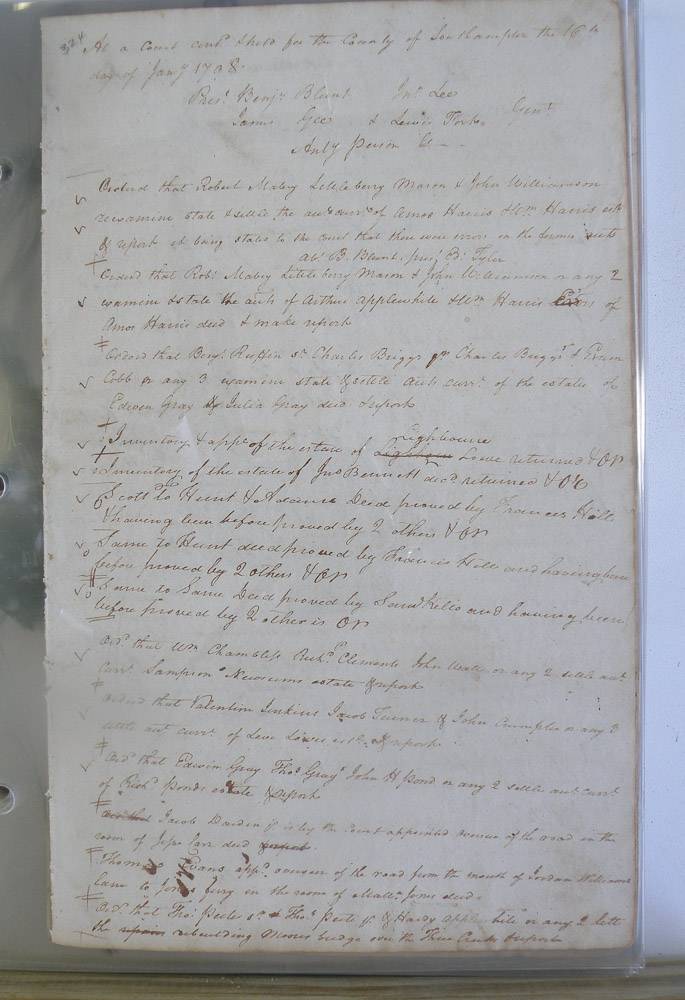 324
At a Court cont.d & held for the County of Southampton the 16th
day of Jany 1798.
Pres.t Benj.n Blunt Jn.o Lee
James Gee & Lewis Gent.
Anty Person
Ordered that Robert Mabry Littleberry Mason & John Williamson
reexamine state & settle the acct curr.t of Amos Harris & Wm Harris
& report it being stated to the Court that there were errors in the former
abs.t B. Blunt. pres.t Ed. Tyler
Ordered that Rob.t Mabry Littleberry Mason & John Williamson or any 2
examine & state the accts of Arthur Applewhite & Wm Harris Exors of
Amos Harris decd & make report
Ordered that Benj.n Ruffin sr Charles Briggs Charles Briggs &
Cobb or any 3 examine state & settle accts curr.t of the estates of
Edwin Gray & Julia Gray decd & report
Inventory & app.t of the estate of Lighbourne Lowe returned & OR
Inventory of the estate of Jno Bennett decd returned & OR
Scott to Hunt & Adams Deed proved by Frances Hill
& having been before proved by 2 others & OR
Same to Hunt deed proved by Francis Hill and having been
before proved by 2 others & OR
Same to Same Deed proved by Saml Kello and having been
before proved by 2 others is OR
Ord. that Wm Chambliss Rich.d Clements John or any 2 settle acct
curr.t Sampson Newsums estate & report
Ordered that Valentine Jenkins Jacob Turner & John Crumpler or any 2
settle acct curr.t of Levi Lowes est. & report
Ord. that Edwin Gray Tho.s Gray John H Pond or any 2 settle acct curr.t
of Rich.d Ponds estate & report
Jacob Darden jr is by the Court appointed overseer of the road in the
room of Carr decd
Thomas Evans app.d overseer of the road from the mouth of Jordan Williams
Lane to Jones ferry in the room of Matt.w Jones decd.
Ord. that Tho.s Peete sr & Tho.s Peete jr & Hardy Applewhite or any 2 lett
the repairs rebuilding Moores bridge over the Three Creeks & report